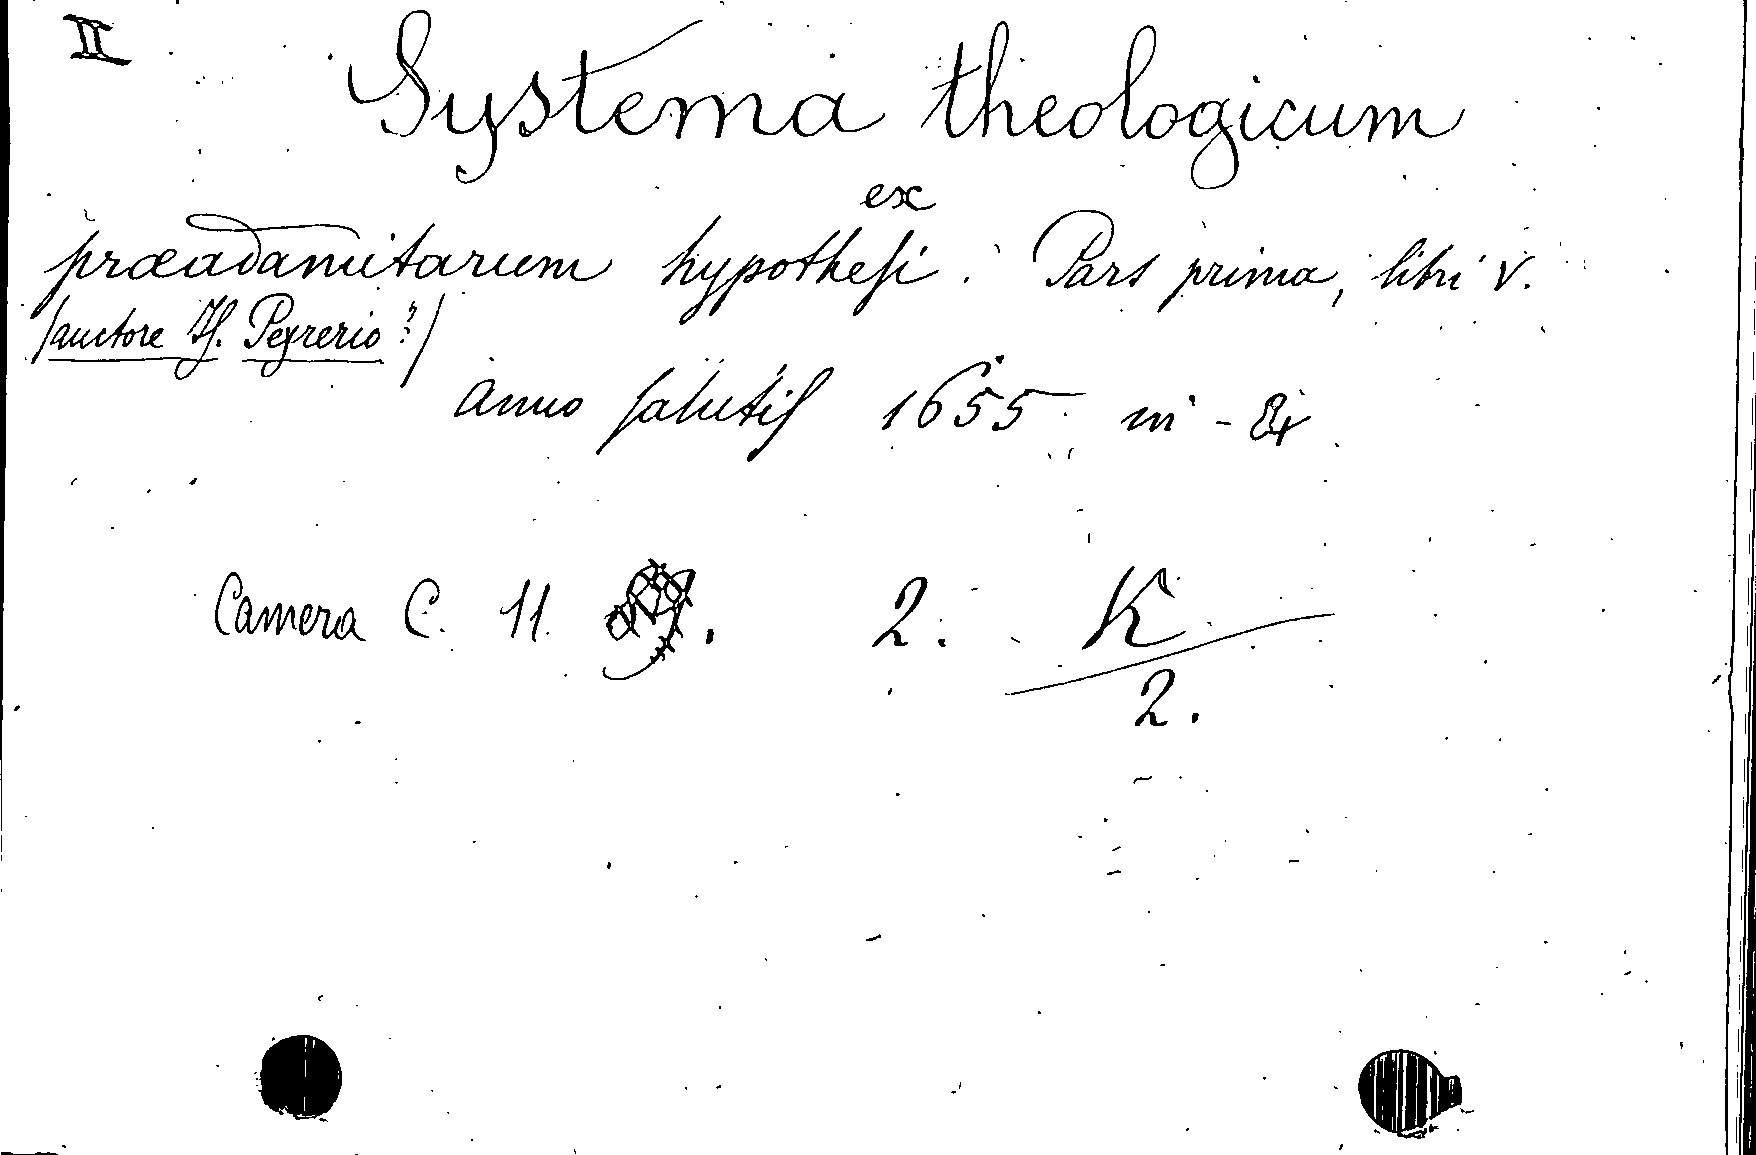 II
Systema theologicum
ex
praeadamitarum hypothesi. Pars prima, libri V.
(auctore Is. Peyrerio?)
anno salutis 1655 in-8º
Camera C. 11. 2. K
2.